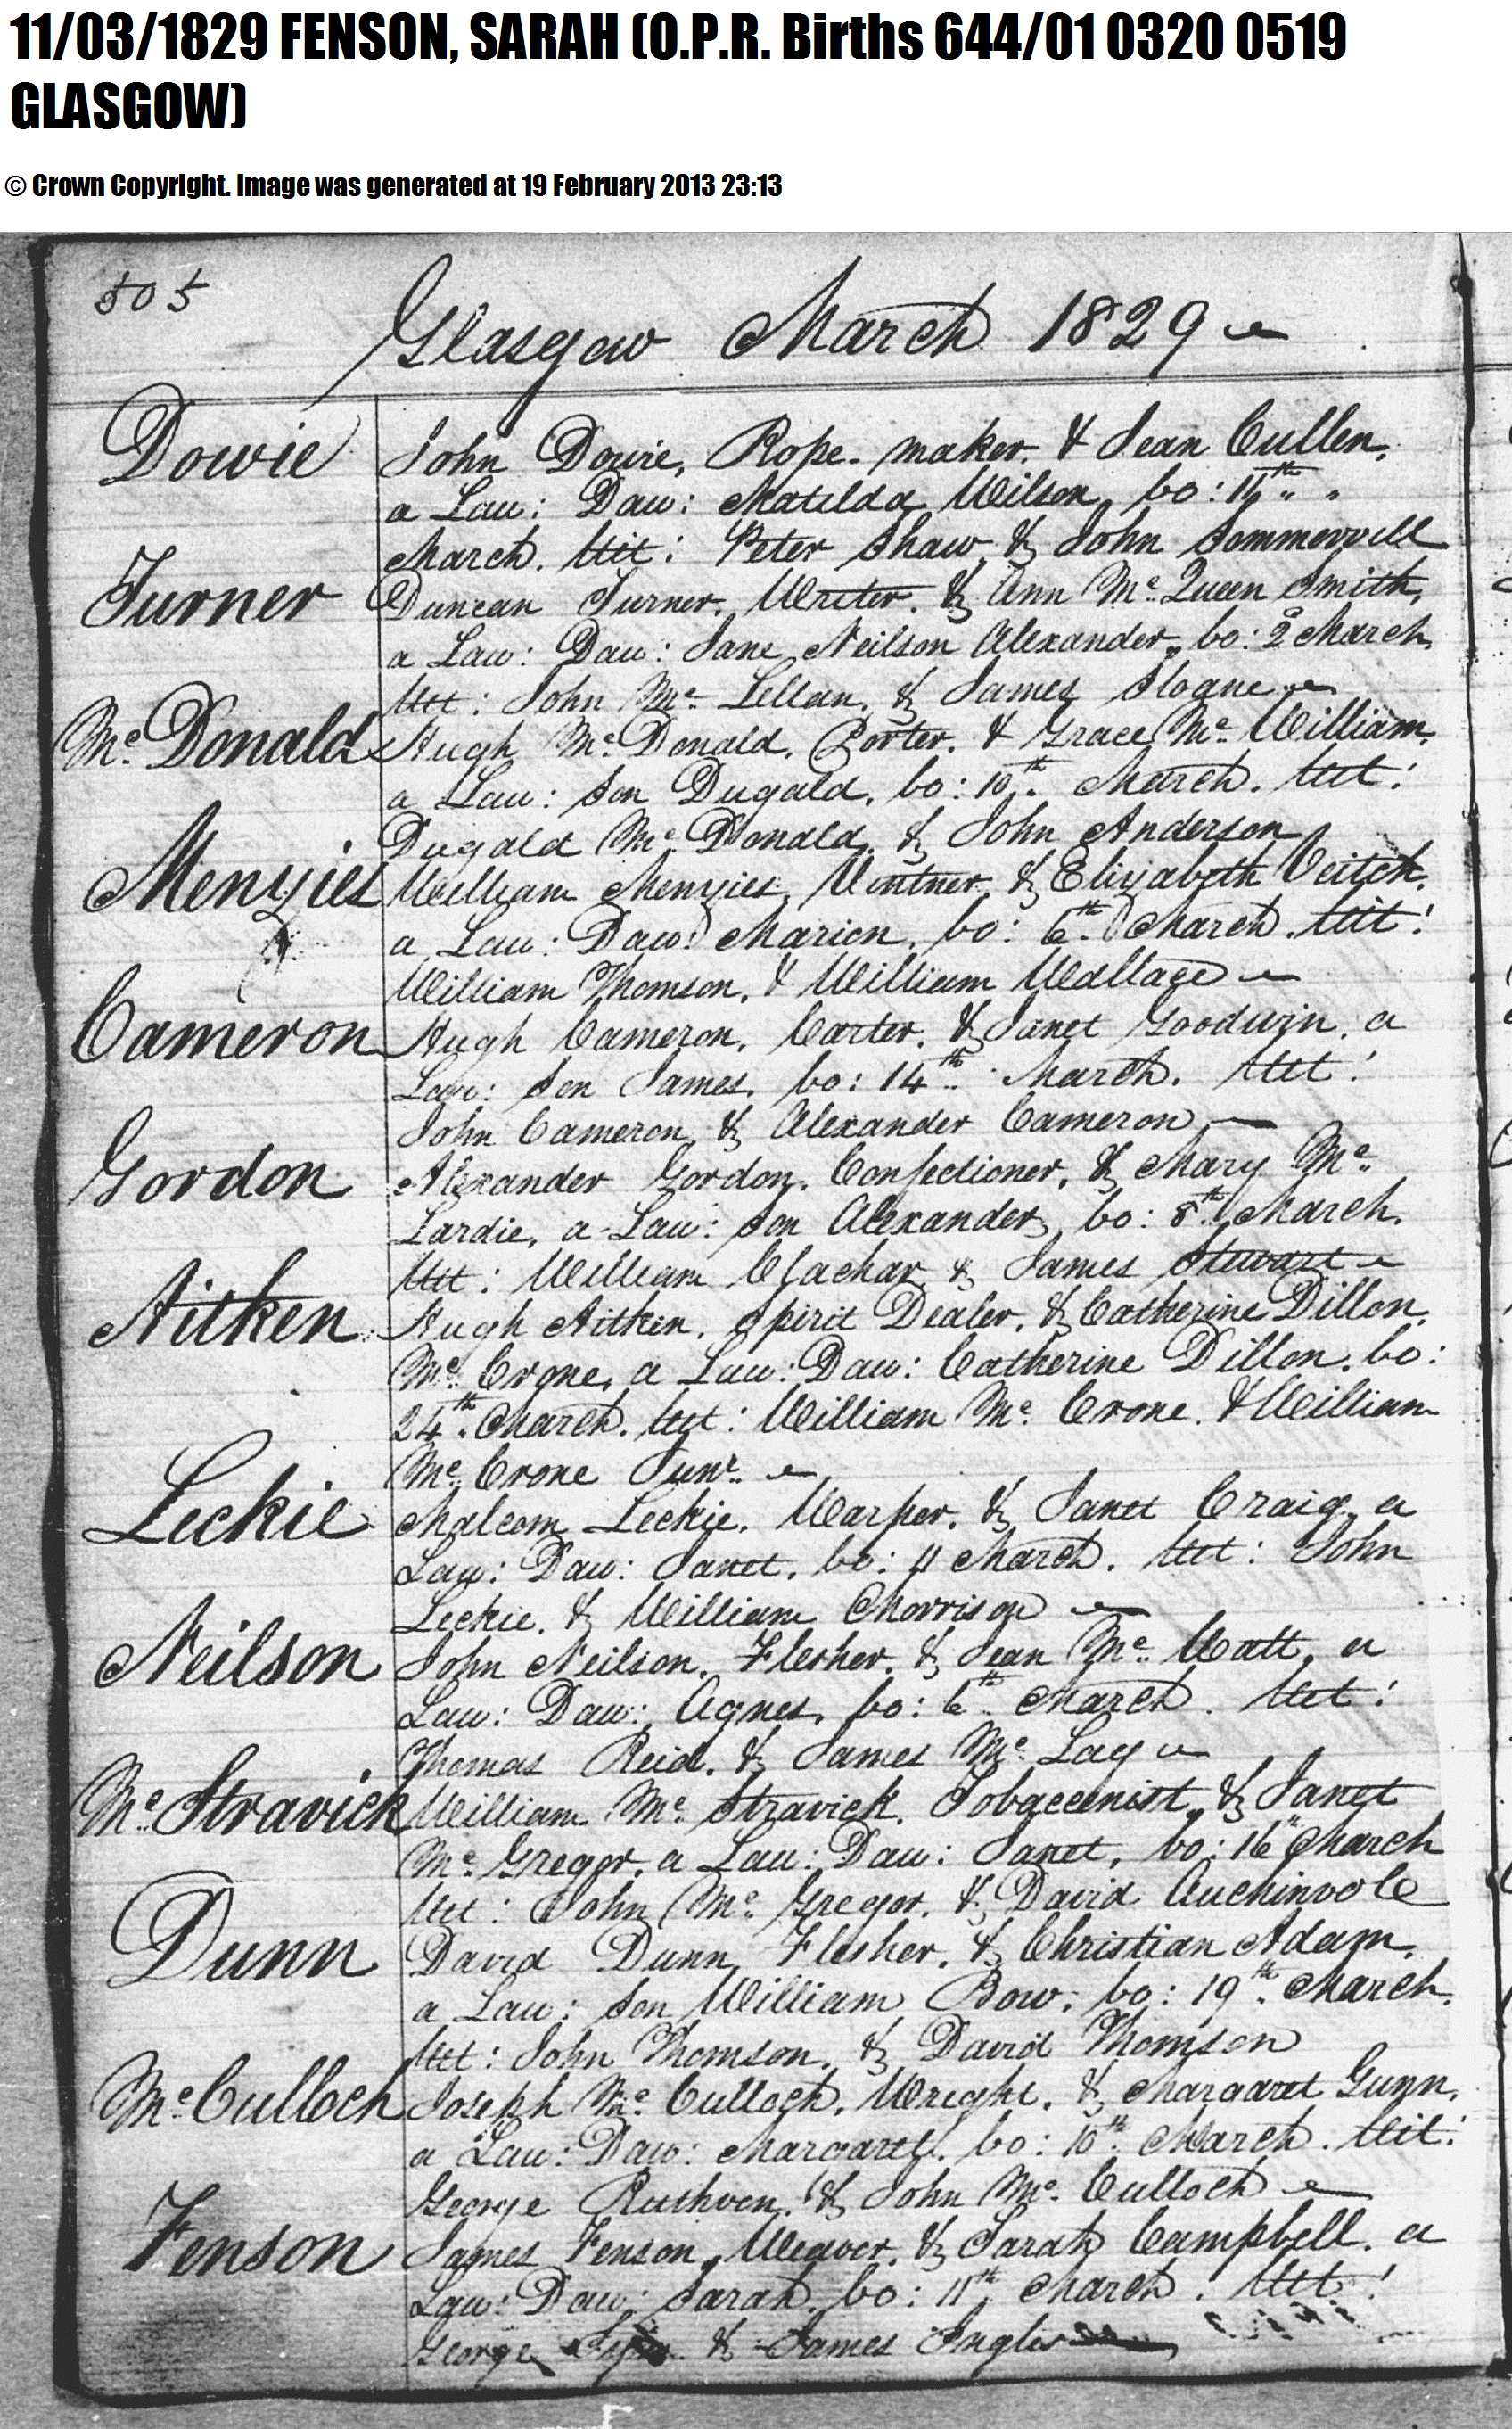 11/03/1829 FENSON, SARAH (O.P.R. Births 644/01 0320 0519
GLASGOW)
© Crown Copyright. Image was generated at 19 February 2013 23:13
505
Glasgow March 1829
Dowie
John Dowie, Rope-maker. & Jean Cullen,
a Law: Daw: Matilda Wilson, bo: 11th
March. Wit: Peter Shaw, & John Sommervill
Turner
Duncan Turner, Writer. & Ann Mc Queen Smith,
a Law: Daw: Jane Neilson Alexander, bo: 2d March
Wit: John Mc Lellan, & James Sloane
Mc Donald
Hugh Mc Donald, Porter. & Grace Mc William,
a Law: Son Dugald, bo: 10th March. Wit:
Dugald Mc Donald, & John Anderson
Menzies
William Menzies, Vintner, & Elizabeth Veitch,
a Law: Daw: Marion, bo: 6th March. Wit:
William Thomson, & William Wallace
Cameron
Hugh Cameron, Carter, & Janet Goodwin, a
Law: Son James, bo: 14th March. Wit:
John Cameron, & Alexander Cameron
Gordon
Alexander Gordon, Confectioner, & Mary Mc
Lardie, a Law: Son Alexander, bo: 8th March.
Wit: William Clachar & James Stewart
Aitken
Hugh Aitken, Spirit Dealer, & Catherine Dillon
Mc Crone, a Law: Daw: Catherine Dillon, bo:
24th March. Wit: William Mc Crone, & William
Mc Crone Junr.
Leckie
Malcom Leckie, Warper, & Janet Craig, a
Law: Daw: Janet, bo: 11 March. Wit: John
Leckie, & William Morrison
Neilson
John Neilson, Flesher, & Jean Mc Watt, a
Law: Daw: Agnes, bo: 6th March. Wit:
Thomas Reid, & James Mc Lay
Mc Stravick
William Mc Stravick, Tobacconist, & Janet
Mc Gregor, a Law: Daw: Janet, bo: 16th March
Wit: John Mc Gregor, & David Auchinvole
Dunn
David Dunn, Flesher, & Christian Adam,
a Law: Son William Bow, bo: 19th March.
Wit: John Thomson, & David Thomson
Mc Culloch
Joseph Mc Culloch, Wright, & Margaret Gunn,
a Law: Daw: Margaret, bo: 10th March. Wit:
George Ruthven, & John Mc Culloch
Fenson
James Fenson, Weaver, & Sarah Campbell, a
Law: Daw: Sarah, bo: 11th March. Wit:
George & James Inglis